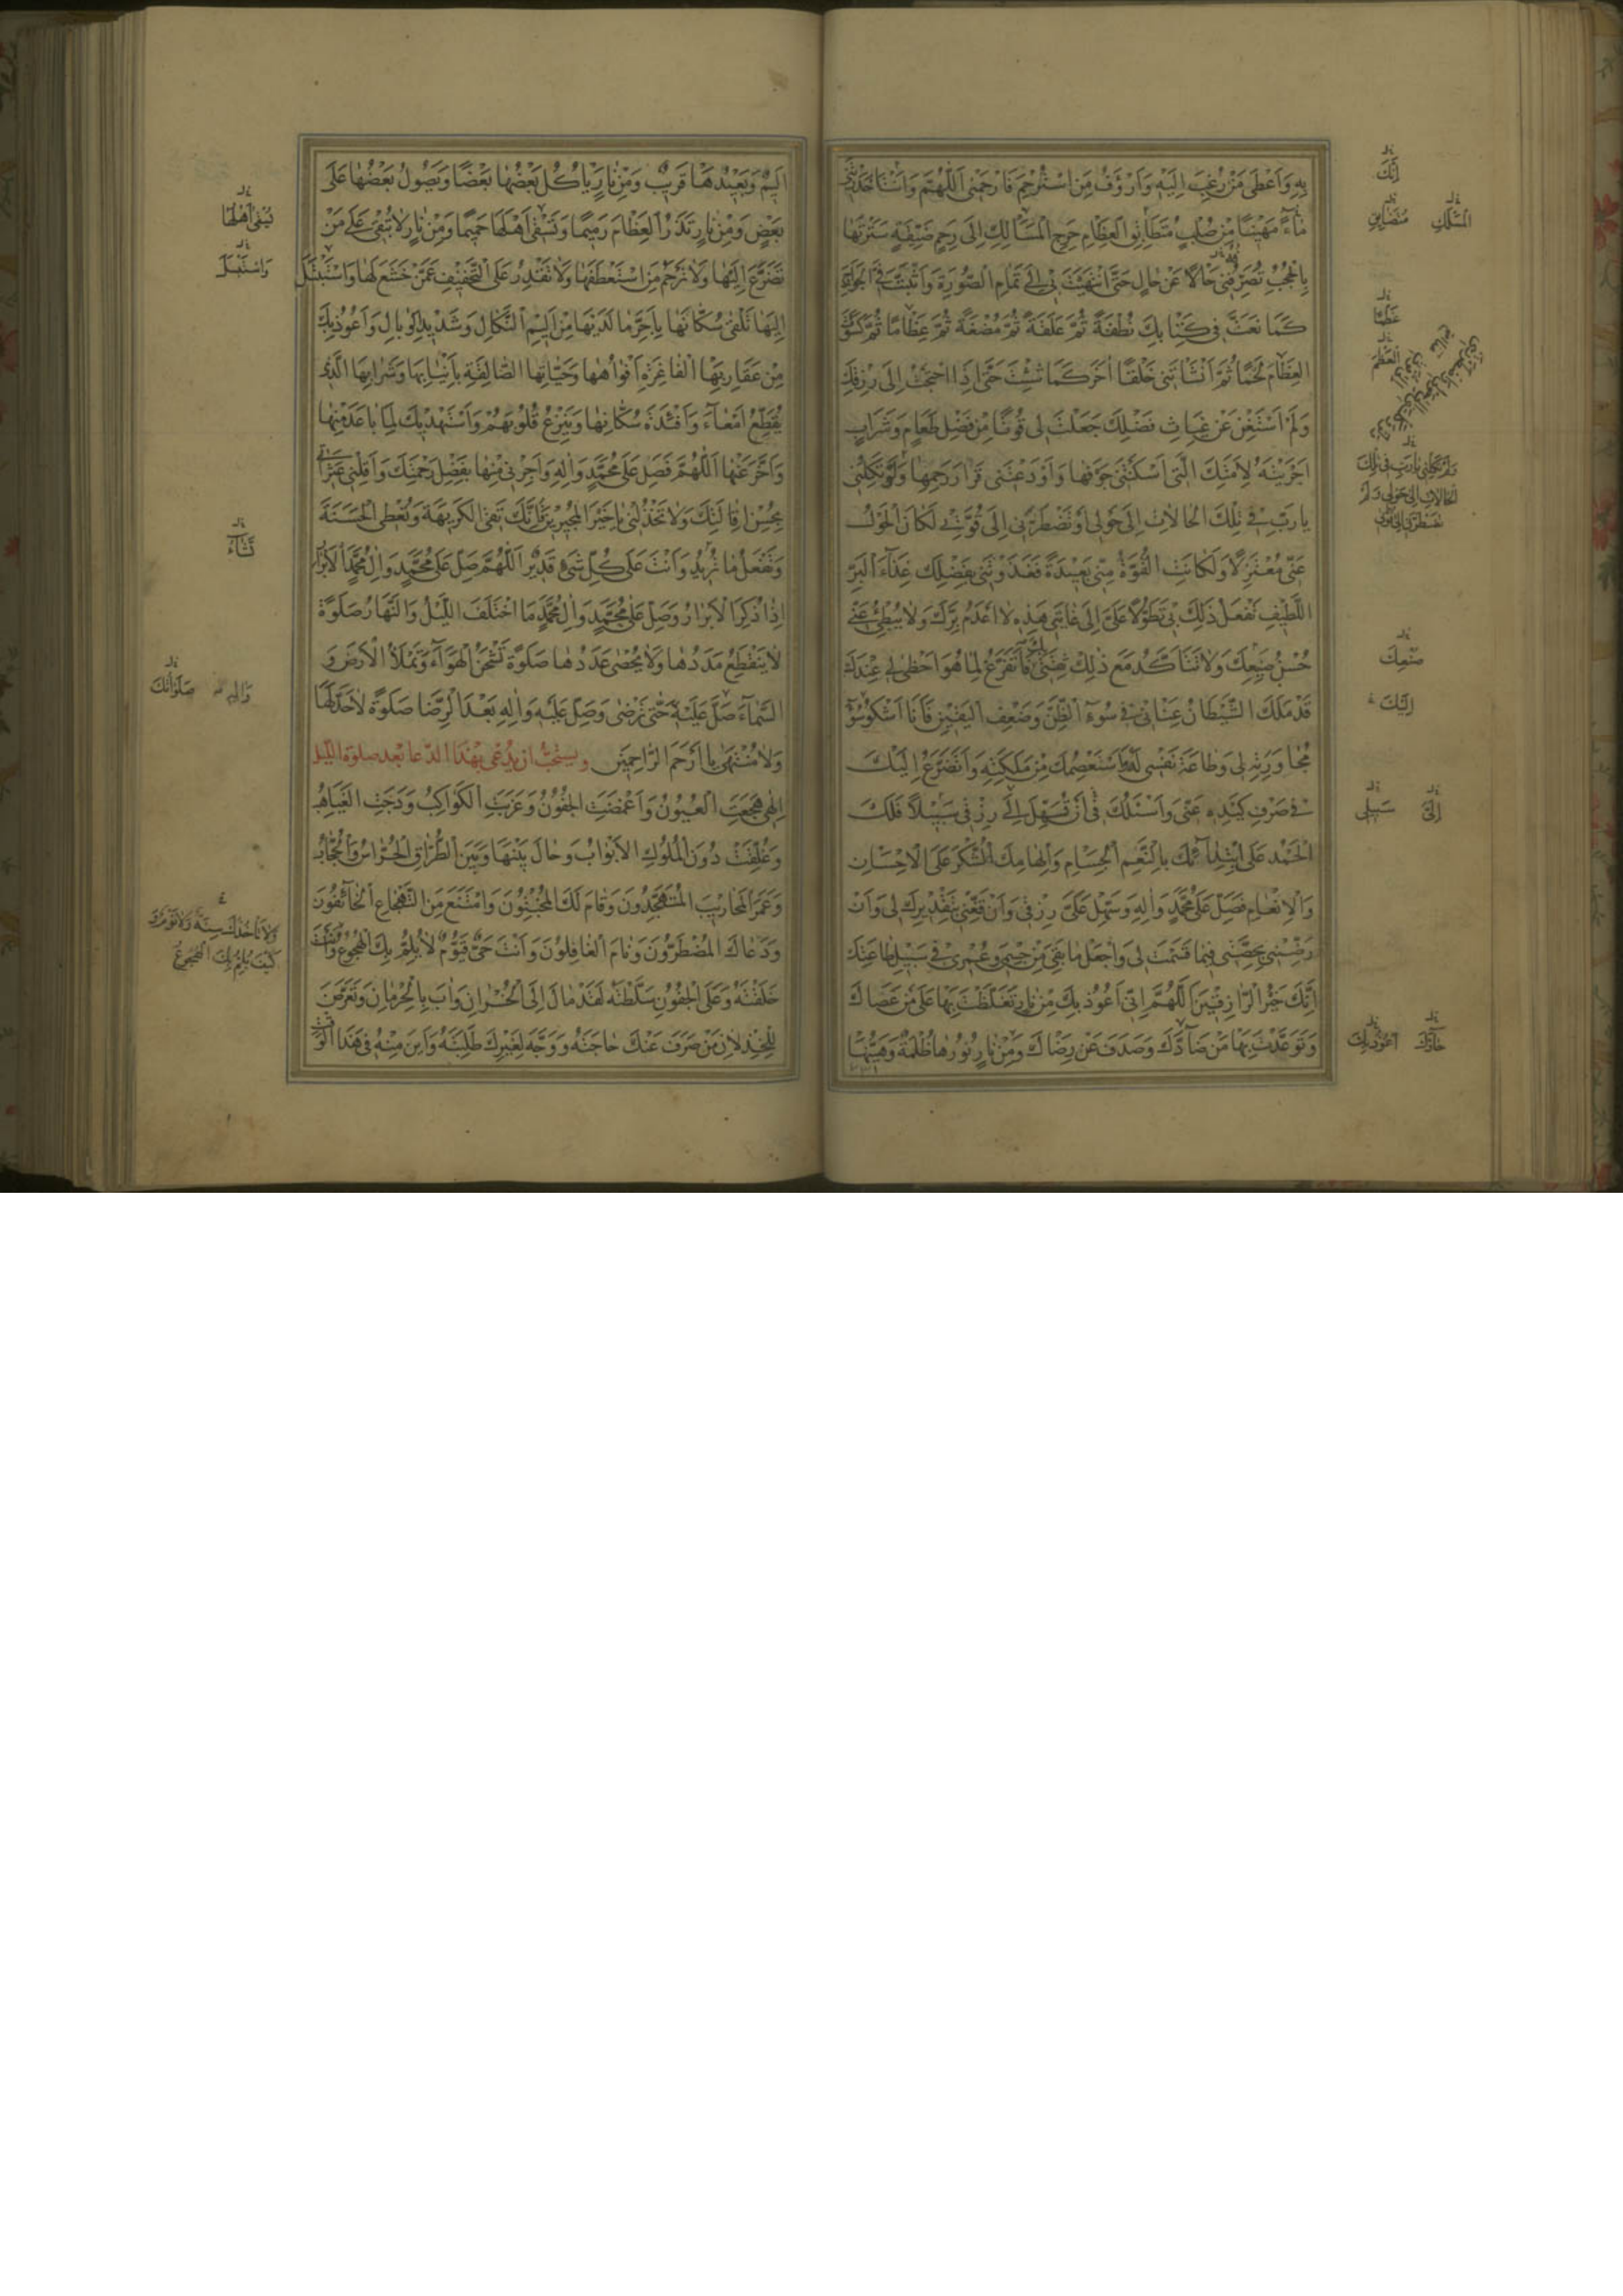 بِهِ وَاَعْطٰى مَنْ رَغِبَ اِلَيْهِ وَاَرْؤَفَ مَنِ اسْتُرْحِمَ فَارْحَمْنِى اَللّٰهُمَّ وَاَنْتَ اَحْدَرْتَنِى
مٰاءً مَهِينًا مِنْ صُلْبٍ مُتَضٰائِقِ الْعِظٰامِ حَرِجِ الْمَسٰالِكِ اِلٰى رَحِمٍ ضَيِّقَةٍ سَتَرْتَهٰا
بِالْحُجُبِ تُصَرِّفُنِى حٰالًا عَنْ حٰالٍ حَتَّى انْتَهَيْتَ بِى اِلٰى تَمٰامِ الصُّورَةِ وَاَثْبَتَّ فِىَّ الْجَوٰارِحَ
كَمٰا نَعَتَّ فِى كِتٰابِكَ نُطْفَةً ثُمَّ عَلَقَةً ثُمَّ مُضْغَةً ثُمَّ عِظٰامًا ثُمَّ كَسَوْتَ
الْعِظٰامَ لَحْمًا ثُمَّ اَنْشَأْتَنِى خَلْقًا اٰخَرَ كَمٰا شِئْتَ حَتّٰى اِذَا احْتَجْتُ اِلٰى رِزْقِكَ
وَلَمْ اَسْتَغْنِ عَنْ غِيٰاثِ فَضْلِكَ جَعَلْتَ لِى قُوتًا مِنْ فَضْلِ طَعٰامٍ وَشَرٰابٍ
اَجْرَيْتَهُ لِاَمَتِكَ الَّتِى اَسْكَنْتَنِى جَوْفَهٰا وَاَوْدَعْتَنِى قَرٰارَ رَحِمِهٰا وَلَوْ تَكِلُنِى
يٰا رَبِّ فِى تِلْكَ الْحٰالٰاتِ اِلٰى حَوْلِى اَوْ تَضْطَرُّنِى اِلٰى قُوَّتِى لَكٰانَ الْحَوْلُ
عَنِّى مُعْتَزِلًا وَلَكٰانَتِ الْقُوَّةُ مِنِّى بَعِيدَةً فَغَذَوْتَنِى بِفَضْلِكَ غِذٰاءَ الْبَرِّ
اللَّطِيفِ تَفْعَلُ ذٰلِكَ بِى تَطَوُّلًا عَلَىَّ اِلٰى غٰايَتِى هٰذِهِ لٰا اَعْدَمُ بِرَّكَ وَلٰا يُبْطِئُ عَنِّى
حُسْنُ صَنِيعِكَ وَلٰا تَتَاَكَّدُ مَعَ ذٰلِكَ ثِقَتِى فَاَتَفَرَّغَ لِمٰا هُوَ اَحْظٰى لِى عِنْدَكَ
قَدْ مَلَكَ الشَّيْطٰانُ عِنٰانِى فِى سُوءِ الظَّنِّ وَضَعْفِ الْيَقِينِ فَاَنَا اَشْكُو سُوءَ
مُجٰاوَرَتِهِ لِى وَطٰاعَةَ نَفْسِى لَهُ وَاَسْتَعْصِمُكَ مِنْ مَلَكَتِهِ وَاَتَضَرَّعُ اِلَيْكَ
فِى صَرْفِ كَيْدِهِ عَنِّى وَاَسْئَلُكَ فِى اَنْ تُسَهِّلَ اِلٰى رِزْقِى سَبِيلًا فَلَكَ
الْحَمْدُ عَلَى ابْتِدٰائِكَ بِالنِّعَمِ الْجِسٰامِ وَاِلْهٰامِكَ الشُّكْرَ عَلَى الْاِحْسٰانِ
وَالْاِنْعٰامِ فَصَلِّ عَلٰى مُحَمَّدٍ وَاٰلِهِ وَسَهِّلْ عَلَىَّ رِزْقِى وَاَنْ تُقَنِّعَنِى بِتَقْدِيرِكَ لِى وَاَنْ
تُرْضِيَنِى بِحِصَّتِى فِيمٰا قَسَمْتَ لِى وَاجْعَلْ مٰا بَقِىَ مِنْ جِسْمِى وَعُمْرِى فِى سَبِيلِ طٰاعَتِكَ
اِنَّكَ خَيْرُ الرّٰازِقِينَ اَللّٰهُمَّ اِنِّى اَعُوذُ بِكَ مِنْ نٰارٍ تَغَلَّظْتَ بِهٰا عَلٰى مَنْ عَصٰاكَ
وَتَوَعَّدْتَ بِهٰا مَنْ ضٰادَّكَ وَصَدَفَ عَنْ رِضٰاكَ وَمِنْ نٰارٍ نُورُهٰا ظُلْمَةٌ وَهَيِّنُهٰا
اِنَّكَ
الْمَسْلَكِ
مُتَضٰايِقِ
عَظْمًا
الْعَظْمَ
وَلَمْ تَكِلْنِى يٰا رَبِّ فِى تِلْكَ
الْحٰالٰاتِ اِلٰى حَوْلِى وَلَمْ
تَضْطَرَّنِى اِلٰى قُوَّتِى
صُنْعِكَ
اِلَيْكَ
اِلَىَّ
سَبِيلِى
اَعُوذُ بِكَ
اَلِيمٌ وَبَعِيدُهٰا قَرِيبٌ وَمِنْ نٰارٍ يَأْكُلُ بَعْضُهٰا بَعْضًا وَيَصُولُ بَعْضُهٰا عَلٰى
بَعْضٍ وَمِنْ نٰارٍ تَذَرُ الْعِظٰامَ رَمِيمًا وَتَسْقِى اَهْلَهٰا حَمِيمًا وَمِنْ نٰارٍ لٰا تُبْقِى عَلٰى مَنْ
تَضَرَّعَ اِلَيْهٰا وَلٰا تَرْحَمُ مَنِ اسْتَعْطَفَهٰا وَلٰا تَقْدِرُ عَلَى التَّخْفِيفِ عَمَّنْ خَشَعَ لَهٰا وَاسْتَبْتَلَ
اِلَيْهٰا تَلْقٰى سُكّٰانَهٰا بِاَحَرِّ مٰا لَدَيْهٰا مِنْ اَلِيمِ النَّكٰالِ وَشَدِيدِ الْوَبٰالِ وَاَعُوذُ بِكَ
مِنْ عَقٰارِبِهَا الْفٰاغِرَةِ اَفْوٰاهُهٰا وَحَيّٰاتِهَا الصّٰالِقَةِ بِاَنْيٰابِهٰا وَشَرٰابِهَا الَّذِى
يُقَطِّعُ اَمْعٰاءَ وَاَفْئِدَةَ سُكّٰانِهٰا وَيَنْزِعُ قُلُوبَهُمْ وَاَسْتَهْدِيكَ لِمٰا بٰاعَدَ مِنْهٰا
وَاَخَّرَ عَنْهٰا اَللّٰهُمَّ فَصَلِّ عَلٰى مُحَمَّدٍ وَاٰلِهِ وَاَجِرْنِى مِنْهٰا بِفَضْلِ رَحْمَتِكَ وَاَقِلْنِى عَثَرٰاتِى
بِحُسْنِ اِقٰالَتِكَ وَلٰا تَخْذُلْنِى يٰا خَيْرَ الْمُجِيرِينَ فَاِنَّكَ تَقِى الْكَرِيهَةَ وَتُعْطِى الْحَسَنَةَ
وَتَفْعَلُ مٰا تُرِيدُ وَاَنْتَ عَلٰى كُلِّ شَىْءٍ قَدِيرٌ اَللّٰهُمَّ صَلِّ عَلٰى مُحَمَّدٍ وَاٰلِ مُحَمَّدٍ الْاَبْرٰارِ
اِذٰا ذُكِرَ الْاَبْرٰارُ وَصَلِّ عَلٰى مُحَمَّدٍ وَاٰلِ مُحَمَّدٍ مَا اخْتَلَفَ اللَّيْلُ وَالنَّهٰارُ صَلٰوةً
لٰا يَنْقَطِعُ مَدَدُهٰا وَلٰا يُحْصٰى عَدَدُهٰا صَلٰوةً تَشْحَنُ الْهَوٰاءَ وَتَمْلَأُ الْاَرْضَ وَ
السَّمٰاءَ صَلِّ عَلَيْهِ حَتّٰى تَرْضٰى وَصَلِّ عَلَيْهِ وَاٰلِهِ بَعْدَ الرِّضٰا صَلٰوةً لٰا حَدَّ لَهٰا
وَلٰا مُنْتَهٰى يٰا اَرْحَمَ الرّٰاحِمِينَ ويستحبّ ان يدعى بهذا الدّعا بعد صلوة اللّيل
اِلٰهِى هَجَعَتِ الْعُيُونُ وَاَغْمَضَتِ الْجُفُونُ وَغَرَبَتِ الْكَوٰاكِبُ وَدَجَتِ الْغَيٰاهِبُ
وَغُلِّقَتْ دُونَ الْمُلُوكِ الْاَبْوٰابُ وَحٰالَ بَيْنَهٰا وَبَيْنَ الطُّرّٰاقِ الْحُرّٰاسُ وَالْحُجّٰابُ
وَعَمَرَ الْمَحٰارِيبَ الْمُتَهَجِّدُونَ وَقٰامَ لَكَ الْمُخْبِتُونَ وَامْتَنَعَ مِنَ التَّهْجٰاعِ الْخٰائِفُونَ
وَدَعٰاكَ الْمُضْطَرُّونَ وَنٰامَ الْغٰافِلُونَ وَاَنْتَ حَىٌّ قَيُّومٌ لٰا يُلِمُّ بِكَ الْهُجُوعُ وَاَنْتَ
خَلَقْتَهُ وَعَلَى الْجُفُونِ سَلَّطْتَهُ لَقَدْ مٰالَ اِلَى الْخُسْرٰانِ وَاٰبَ بِالْحِرْمٰانِ وَتَعَرَّضَ
لِلْخِذْلٰانِ مَنْ صَرَفَ عَنْكَ حٰاجَتَهُ وَوَجَّهَ لِغَيْرِكَ طَلِبَتَهُ وَاَيْنَ مِنْهُ فِى هٰذَا الْوَقْتِ
وَاسْتَبْسَلَ
تَشٰاءُ
وَاٰلِهِ
صَلَوٰاتُكَ
وَلٰا تَأْخُذُكَ سِنَةٌ وَلٰا نَوْمٌ وَ
كَيْفَ يُلِمُّ بِكَ الْهُجُوعُ